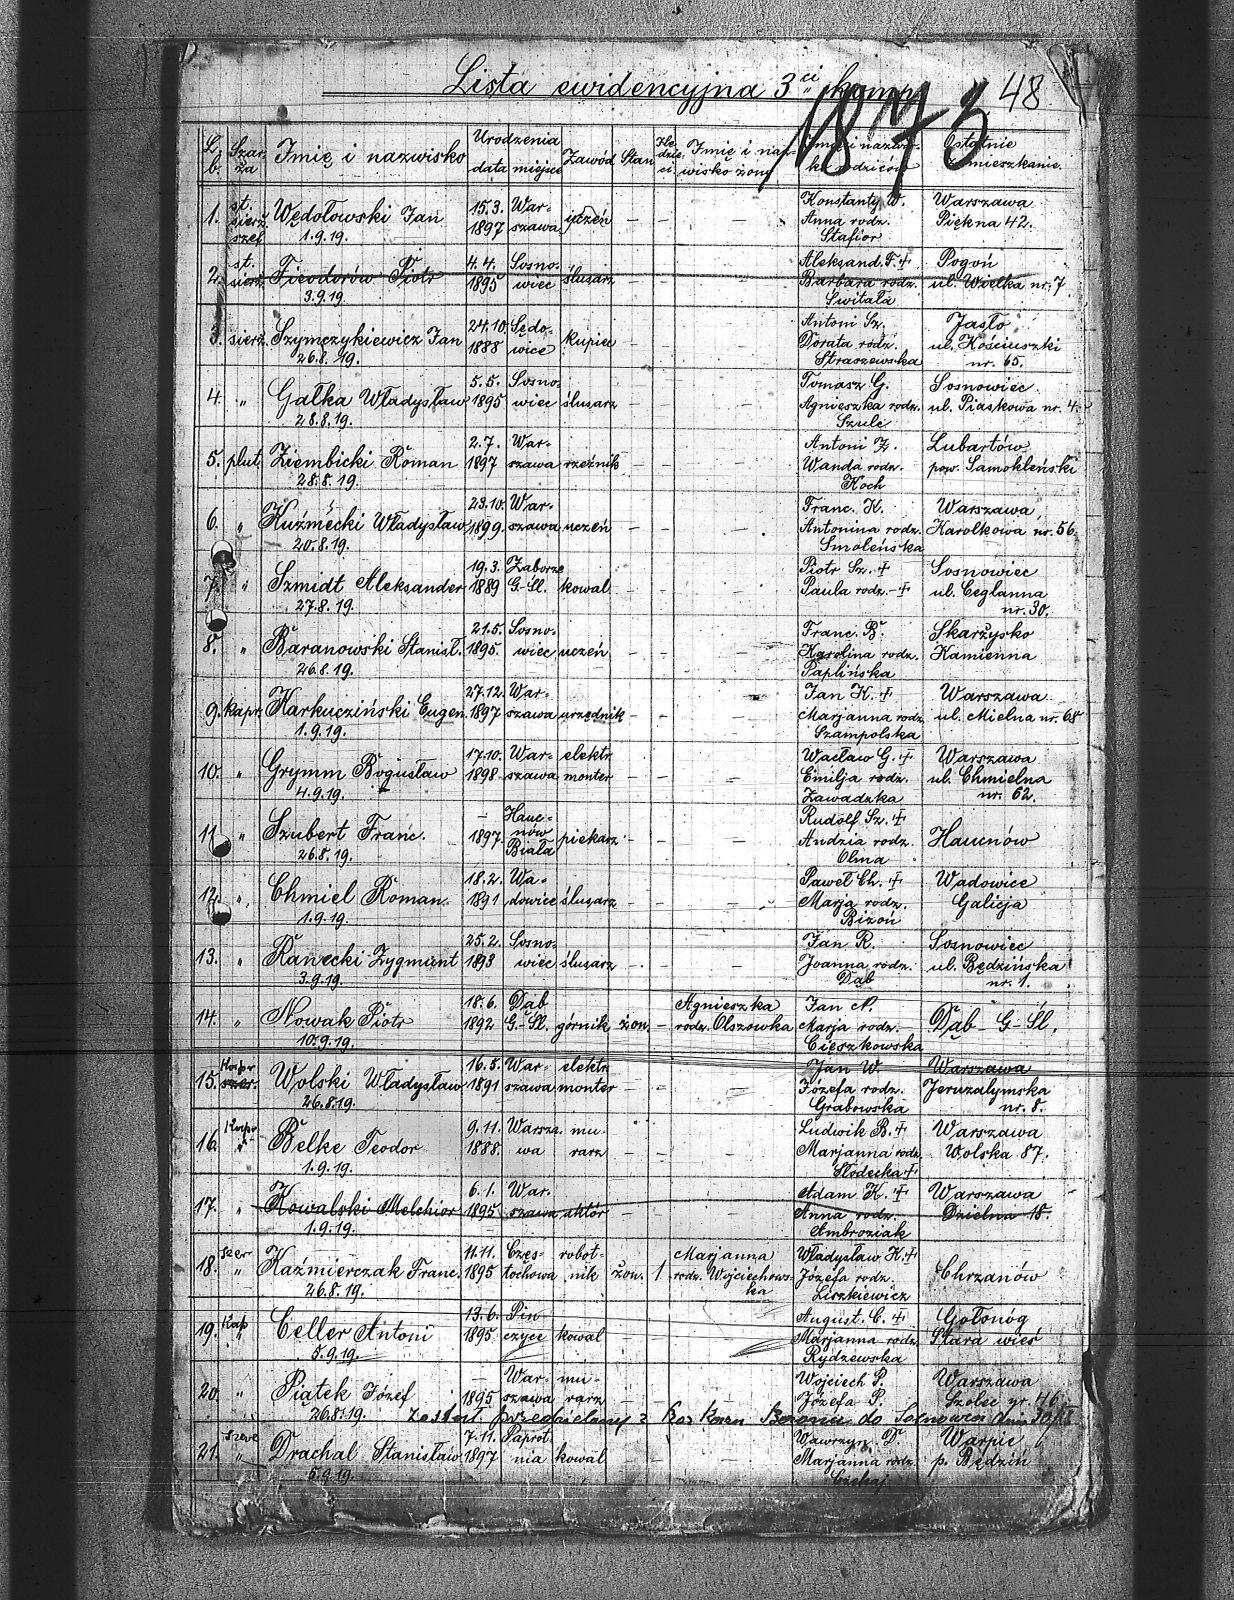 Lista ewidencyjna 3ci komp. 48
1873
L. b. Szarża Imię i nazwisko Urodzenia data miejsce Zawód Stan Imię i nazwisko żony Imię i nazwisko rodziców Ostatnie zamieszkanie
1. st. sierż. szef Wędołowski Jan 15.3. 1897 Warszawa uczeń – – – Konstanty W. Anna rodz. Stafior Warszawa Piękna 42.
1.9.19.
2. st. sierż. Fieodorów Piotr 4.4. 1895 Sosnowiec ślusarz – – – Aleksand. F. + Barbara rodz. Switała Pogoń ul. Wielka nr. 7
3.9.19.
3. sierż. Szymczykiewicz Jan 24.10. 1888 Sędowice kupiec – – – Antoni Sz. Dorata rodz. Straszewska Jasło ul. Kościuszki nr. 65.
26.8.19.
4. „ Gałka Władysław 5.5. 1895 Sosnowiec ślusarz – – – Tomasz G. Agnieszka rodz. Szulc Sosnowiec ul. Piaskowa nr. 4.
28.8.19.
5. plut. Ziembicki Roman 2.7. 1897 Warszawa rzeźnik – – – Antoni Z. Wanda rodz. Koch Lubartów pow. Samokleński
28.8.19.
6. „ Kuźmecki Władysław 23.10. 1899 Warszawa uczeń – – – Franc. K. Antonina rodz. Smoleńska Warszawa, Karolkowa nr. 56.
20.8.19.
7. „ Szmidt Aleksander 19.3. 1889 Zaborze G-Śl. kowal – – – Piotr Sz. + Paula rodz. – + Sosnowiec ul. Ceglanna nr. 30.
27.8.19.
8. „ Baranowski Stanisł. 21.5. 1895. Sosnowiec uczeń – – – Franc. B. Karolina rodz. Paplińska Skarżysko Kamienna
26.8.19.
9. kapr. Karkuciński Eugen. 27.12. 1897 Warszawa urzędnik – – – Jan K. + Marjanna rodz. Szampolska Warszawa ul. Mielna nr. 68
1.9.19.
10. „ Grymm Bogusław 17.10. 1898 Warszawa elektr. monter – – – Wacław G. + Emilja rodz. Zawadzka Warszawa ul. Chmielna nr. 62.
4.9.19.
11. „ Szubert Franc. – 1897. Haucnów Biała piekarz – – – Rudolf Sz. + Andzia rodz. Olma Haucnów
26.8.19.
12. „ Chmiel Roman. 18.2. 1891 Wadowice ślusarz – – – Paweł Ch. + Marja rodz. Bizoń Wadowice Galicja
1.9.19.
13. „ Kanecki Zygmunt 25.2. 1893 Sosnowiec ślusarz – – – Jan R. Joanna rodz. Dąb Sosnowiec ul. Będzińska nr. 1.
3.9.19.
14. „ Nowak Piotr 18.6. 1892 Dąb G-Śl. górnik żon. – Agnieszka rodz. Olszówka Jan N. Marja rodz. Cięszkowska Dąb – G-Śl.
10.9.19.
15. Kapr szer. Wolski Władysław 16.5. 1891 Warszawa elektr. monter – – – Jan W. Józefa rodz. Grabowska Warszawa Jeruzalymska nr. 8.
26.8.19.
16. Kapr „ Belke Teodor 9.11. 1888. Warszawa murarz – – – Ludwik B. + Marjanna rodz. Słodecka + Warszawa Wolska 87.
1.9.19.
17. „ Kowalski Melchior 6.1. 1895 Warszawa aktór – – – Adam K. + Anna rodz. Ambroziak Warszawa Dzielna 18.
1.9.19.
18. szer „ Kaźmierczak Franc. 11.11. 1895 Częstochowa robotnik żon. 1 Marjanna rodz. Wojciechowska Władysław K. + Józefa rodz. Liszkiewicz Chrzanów
26.8.19.
19. Kap „ Celler Antoni 13.6. 1895 Pinczyce kowal – – August. C. + Marjanna rodz. Rydzewska Gołonóg Stara wieś
5.9.19.
20. „ Piątek Józef – 1895 Warszawa murarz – – – Wojciech P. Józefa P. Warszawa Szolec nr. 46.
26.8.19. Został przedzielany z do Sosnowca dnia
21. szere „ Drachal Stanisław 7.11. 1897 Paprotnia kowal – – – Wawrzyn. D. Marjanna rodz. Czekaj Warpie p. Będzin
5.9.19.